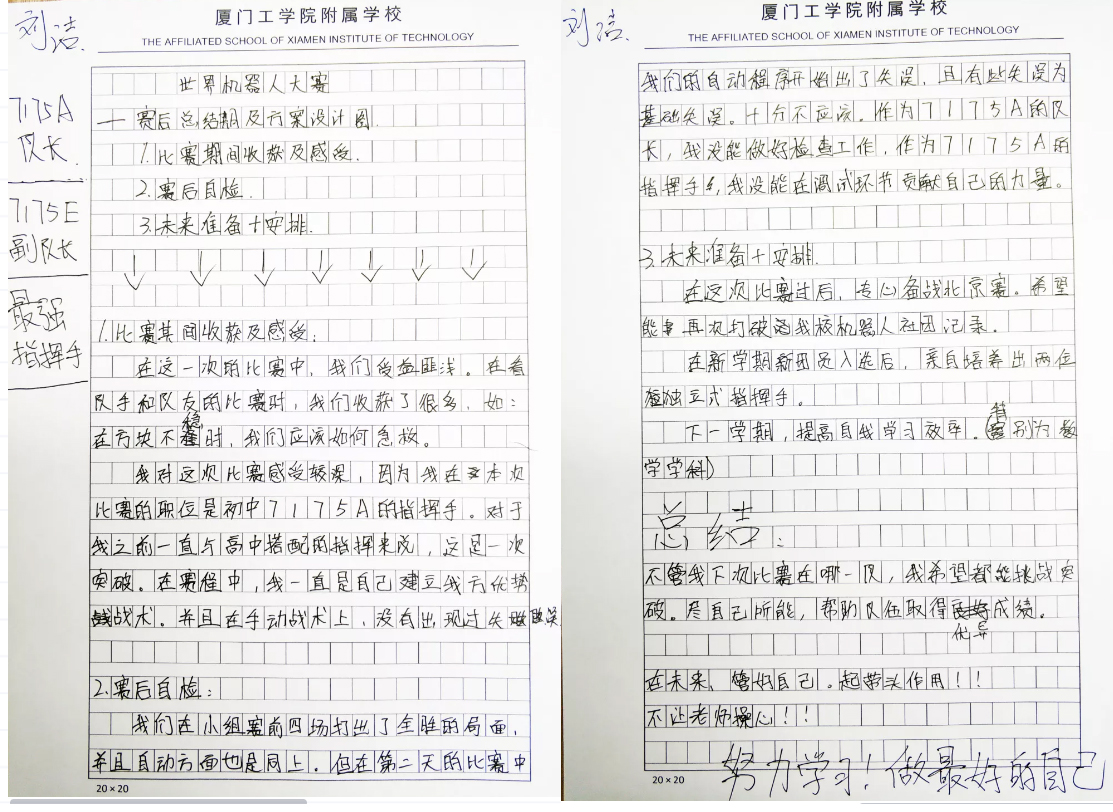 刘洁.
厦门工学院附属学校
THE AFFILIATED SCHOOL OF XIAMEN INSTITUTE OF TECHNOLOGY
7175A
队长.
7175E
副队长
最强
指挥手
世界机器人大赛
一 赛后总结期及方案设计图.
1.比赛期间收获及感受.
2.赛后自检.
3.未来准备+安排.
1.比赛其间收获及感受:
在这一次的比赛中,我们受益匪浅。在看
队手和队友的比赛时,我们收获了很多,如:
在方块不稳时,我们应该如何急救。
我对这次比赛感受较深,因为我在本次
比赛的职位是初中7175A的指挥手。对于
我之前一直与高中搭配的指挥来说,这是一次
突破。在赛程中,我一直是自己建立我方优势
战术。并且在手动战术上,没有出现过失误
2.赛后自检:
我们在小组赛前四场打出了全胜的局面,
并且自动方面也是同上。但在第二天的比赛中
20×20
刘洁.
厦门工学院附属学校
THE AFFILIATED SCHOOL OF XIAMEN INSTITUTE OF TECHNOLOGY
我们的自动程序开始出了失误,且有些失误为
基础失误。十分不应该。作为7175A的队
长,我没能做好检查工作,作为7175A的
指挥手,我没能在调试环节贡献自己的力量。
3.未来准备+安排.
在这次比赛过后,专心备战北京赛。希望
能再次打破我校机器人社团记录。
在新学期新团员入选后,亲自培养出两位
独立式指挥手。
下一学期,提高自我学习效率。(特别为数
学学科)
总结:
不管我下次比赛在哪一队,我希望都能挑战突
破。尽自己所能,帮助队伍取得优异成绩。
在未来、管好自己。起带头作用!!
不让老师操心!!
努力学习!做最好的自己
20×20